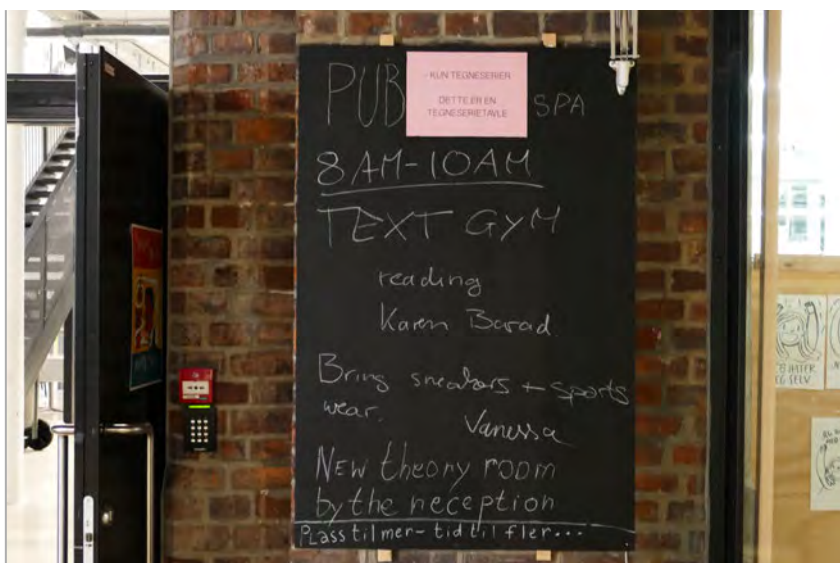 PUB SPA
KUN TEGNESERIER
DETTE ER EN
TEGNESERIETAVLE
8 AM-10AM
TEXT GYM
reading
Karen Barad
Bring sneakers + sports
wear.
Vanessa
NEW theory room
by the reception
PLass til mer- tid til fler...